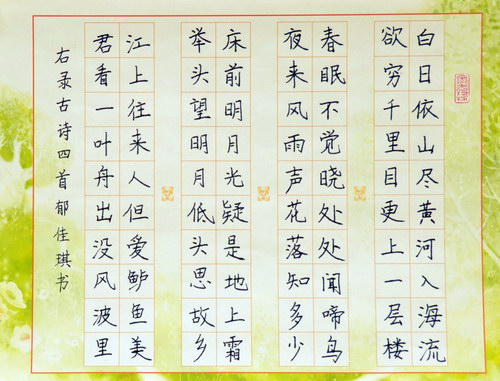 白日依山尽黄河入海流
欲穷千里目更上一层楼
春眠不觉晓处处闻啼鸟
夜来风雨声花落知多少
床前明月光疑是地上霜
举头望明月低头思故乡
江上往来人但爱鲈鱼美
君看一叶舟出没风波里
右录古诗四首郁佳琪书